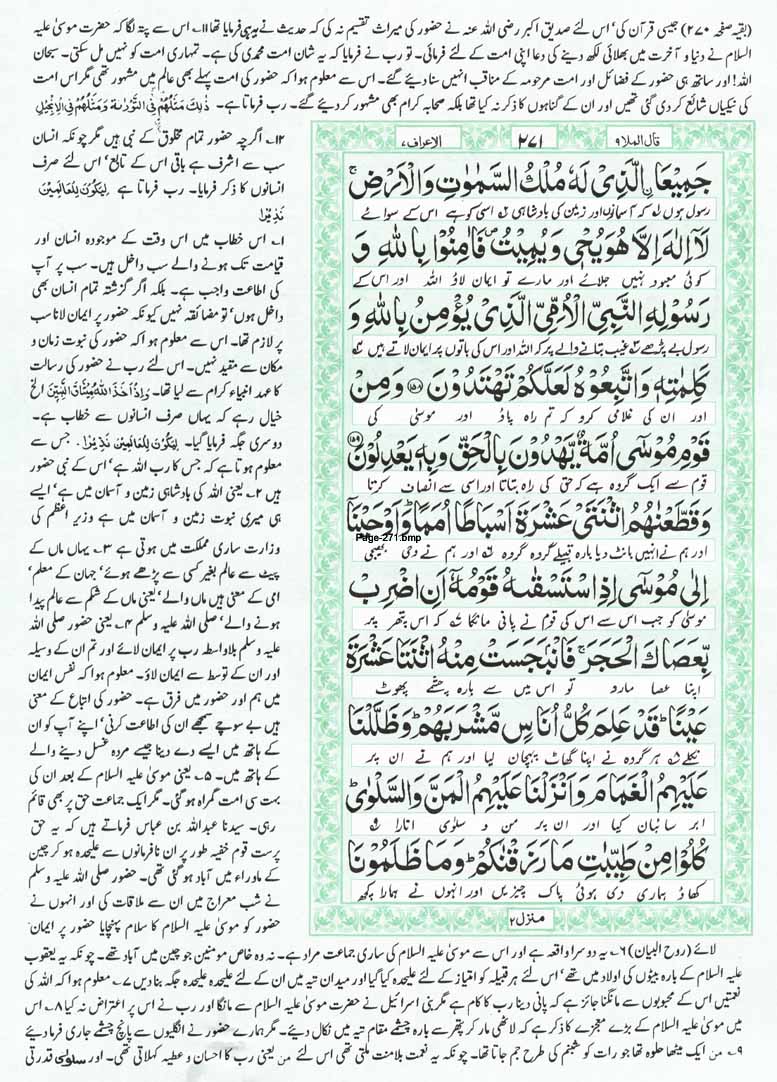 (بقیہ صفحہ ۲۷۰) جیسی قرآن کی' اس لئے صدیق اکبر رضی اللہ عنہ نے حضور کی میراث تقسیم نہ کی کہ حدیث نے یہ ہی فرمایا تھا ۱۱۔ اس سے پتہ لگا کہ حضرت موسیٰ علیہ
السلام نے دنیا و آخرت میں بھلائی لکھ دینے کی دعا اپنی امت کے لئے فرمائی۔ تو رب نے فرمایا کہ یہ شان امت محمدی کی ہے۔ تمہاری امت کو نہیں مل سکتی۔ سبحان
اللہ! اور ساتھ ہی حضور کے فضائل اور امت مرحومہ کے مناقب انہیں سنا دیئے گئے۔ اس سے معلوم ہوا کہ حضور کی امت پہلے بھی عالم میں مشہور تھی مگر اس امت
کی نیکیاں شائع کر دی گئی تھیں اور ان کے گناہوں کا ذکر نہ کیا تھا بلکہ صحابہ کرام بھی مشہور کر دیئے گئے۔ رب فرماتا ہے۔ ذٰلِكَ مَثَلُهُمْ فِى التَّوْرٰىةِ وَمَثَلُهُمْ فِى الْاِنْجِيْلِ
۱۲۔ اگرچہ حضور تمام مخلوق کے نبی ہیں مگر چونکہ انسان
سب سے اشرف ہے باقی اس کے تابع' اس لئے صرف
انسانوں کا ذکر فرمایا۔ رب فرماتا ہے لِيَكُوْنَ لِلْعَالَمِيْنَ
نَذِيْرًا
۱۔ اس خطاب میں اس وقت کے موجودہ انسان اور
قیامت تک ہونے والے سب داخل ہیں۔ سب پر آپ
کی اطاعت واجب ہے۔ بلکہ اگر گزشتہ تمام انسان بھی
داخل ہوں' تو مضائقہ نہیں کیونکہ حضور پر ایمان لانا سب
پر لازم تھا۔ اس سے معلوم ہوا کہ حضور کی نبوت زمان و
مکان سے مقید نہیں۔ اس لئے رب نے حضور کی رسالت
کا عہد انبیاء کرام سے لیا تھا۔ وَاِذْ اَخَذَ اللّٰهُ مِيْثَاقَ النَّبِيّٖنَ الخ
خیال رہے کہ یہاں صرف انسانوں سے خطاب ہے۔
دوسری جگہ فرمایا گیا۔ لِيَكُوْنَ لِلْعَالَمِيْنَ نَذِيْرًا۔ جس سے
معلوم ہوتا ہے کہ جس کا رب اللہ ہے' اس کے نبی حضور
ہیں ۲۔ یعنی اللہ کی بادشاہی زمین و آسمان میں ہے' ایسے
ہی میری نبوت زمین و آسمان میں ہے وزیر اعظم کی
وزارت ساری مملکت میں ہوتی ہے ۳۔ یہاں ماں کے
پیٹ سے عالم بغیر کسی سے پڑھے ہوئے' جہان کے معلم'
امی کے معنی ہیں ماں والے' یعنی ماں کے شکم سے عالم پیدا
ہونے والے' صلی اللہ علیہ وسلم ۴۔ یعنی حضور صلی اللہ
علیہ وسلم بلاواسطہ رب پر ایمان لائے اور تم ان کے وسیلہ
اور ان کے توسط سے ایمان لاؤ۔ معلوم ہوا کہ نفس ایمان
میں ہم اور حضور میں فرق ہے۔ حضور کی اتباع کے معنی
ہیں بے سوچے سمجھے ان کی اطاعت کرنی' اپنے آپ کو ان
کے ہاتھ میں ایسے دے دینا جیسے مردہ غسل دینے والے
کے ہاتھ میں۔ ۵۔ یعنی موسیٰ علیہ السلام کے بعد ان کی
بہت سی امت گمراہ ہو گئی۔ مگر ایک جماعت حق پر بھی قائم
رہی۔ سیدنا عبداللہ بن عباس فرماتے ہیں کہ یہ حق
پرست قوم خفیہ طور پر ان نافرمانوں سے علیحدہ ہو کر چین
کے ماوراء میں آباد ہو گئی تھی۔ حضور صلی اللہ علیہ وسلم
نے شب معراج میں ان سے ملاقات کی اور انہوں نے
حضور کو موسیٰ علیہ السلام کا سلام پہنچایا حضور پر ایمان
قال الملا ۹ ۲۷۱ الاعراف ۷
جَمِيْعَا ۨ الَّذِىْ لَهٗ مُلْكُ السَّمٰوٰتِ وَالْاَرْضِ ۚ
رسول ہوں کہ آسمانوں اور زمین کی بادشاہی اسی کو ہے اس کے سوا نے
لَاۤ اِلٰهَ اِلَّا هُوَ يُحْىٖ وَيُمِيْتُ ۪ فَاٰمِنُوْا بِاللّٰهِ وَ
کوئی معبود نہیں جلائے اور مارے تو ایمان لاؤ اللہ اور اس کے
رَسُوْلِهِ النَّبِىِّ الْاُمِّىِّ الَّذِىْ يُؤْمِنُ بِاللّٰهِ وَ
رسول بے پڑھے غیب بتانے والے پر کہ اللہ اور اس کی باتوں پر ایمان لاتے ہیں
كَلِمٰتِهٖ وَاتَّبِعُوْهُ لَعَلَّكُمْ تَهْتَدُوْنَ ۝۱۵۸ وَمِنْ
اور ان کی غلامی کرو کہ تم راہ پاؤ اور موسیٰ کی
قَوْمِ مُوْسٰۤى اُمَّةٌ يَّهْدُوْنَ بِالْحَقِّ وَبِهٖ يَعْدِلُوْنَ ۝۱۵۹
قوم سے ایک گروہ ہے کہ حق کی راہ بتاتا اور اسی سے انصاف کرتا
وَقَطَّعْنٰهُمُ اثْنَتَىْ عَشْرَةَ اَسْبَاطًا اُمَمًا ؕ وَاَوْحَيْنَاۤ
Page-271.bmp
اور ہم نے انہیں بانٹ دیا بارہ قبیلے گروہ گروہ اور ہم نے وحی بھیجی
اِلٰى مُوْسٰۤى اِذِ اسْتَسْقٰىهُ قَوْمُهٗۤ اَنِ اضْرِبْ
موسیٰ کو جب اس سے اس کی قوم نے پانی مانگا کہ اس پتھر پر
بِّعَصَاكَ الْحَجَرَ ۚ فَانْۢبَجَسَتْ مِنْهُ اثْنَتَا عَشْرَةَ
اپنا عصا مارو تو اس میں سے بارہ چشمے پھوٹ
عَيْنًا ؕ قَدْ عَلِمَ كُلُّ اُنَاسٍ مَّشْرَبَهُمْ ؕ وَظَلَّلْنَا
نکلے ہر گروہ نے اپنا گھاٹ پہچان لیا اور ہم نے ان پر
عَلَيْهِمُ الْغَمَامَ وَاَنْزَلْنَا عَلَيْهِمُ الْمَنَّ وَالسَّلْوٰى ؕ
ابر سائبان کیا اور ان پر من و سلویٰ اتارا
كُلُوْا مِنْ طَيِّبٰتِ مَا رَزَقْنٰكُمْ ؕ وَمَا ظَلَمُوْنَا
کھاؤ ہماری دی ہوئی پاک چیزیں اور انہوں نے ہمارا کچھ
منزل ۲
لائے (روح البیان) ۶۔ یہ دوسرا واقعہ ہے اور اس سے موسیٰ علیہ السلام کی ساری جماعت مراد ہے۔ نہ وہ خاص مومنین جو چین میں آباد تھے۔ چونکہ یہ یعقوب
علیہ السلام کے بارہ بیٹوں کی اولاد میں تھے' اس لئے ہر قبیلہ کو امتیاز کے لئے علیحدہ کیا گیا اور میدان تیہ میں ان کے لئے علیحدہ علیحدہ جگہ بنا دیں ۷۔ معلوم ہوا کہ اللہ کی
نعمتیں اس کے محبوبوں سے مانگنا جائز ہے کہ پانی دینا رب کا کام ہے مگر بنی اسرائیل نے حضرت موسیٰ علیہ السلام سے مانگا اور رب نے اس پر اعتراض نہ کیا ۸۔ اس
میں موسیٰ علیہ السلام کے بڑے معجزے کا ذکر ہے کہ لاٹھی مار کر پتھر سے بارہ چشمے مقام تیہ میں نکال دیئے۔ مگر ہمارے حضور نے انگلیوں سے پانچ چشمے جاری فرما دیئے
۹۔ من ایک میٹھا حلوہ تھا جو رات کو شبنم کی طرح جم جاتا تھا۔ چونکہ یہ نعمت بلا محنت ملتی تھی اس لئے من یعنی رب کا احسان و عطیہ کہلاتی تھی۔ اور سلویٰ قدرتی